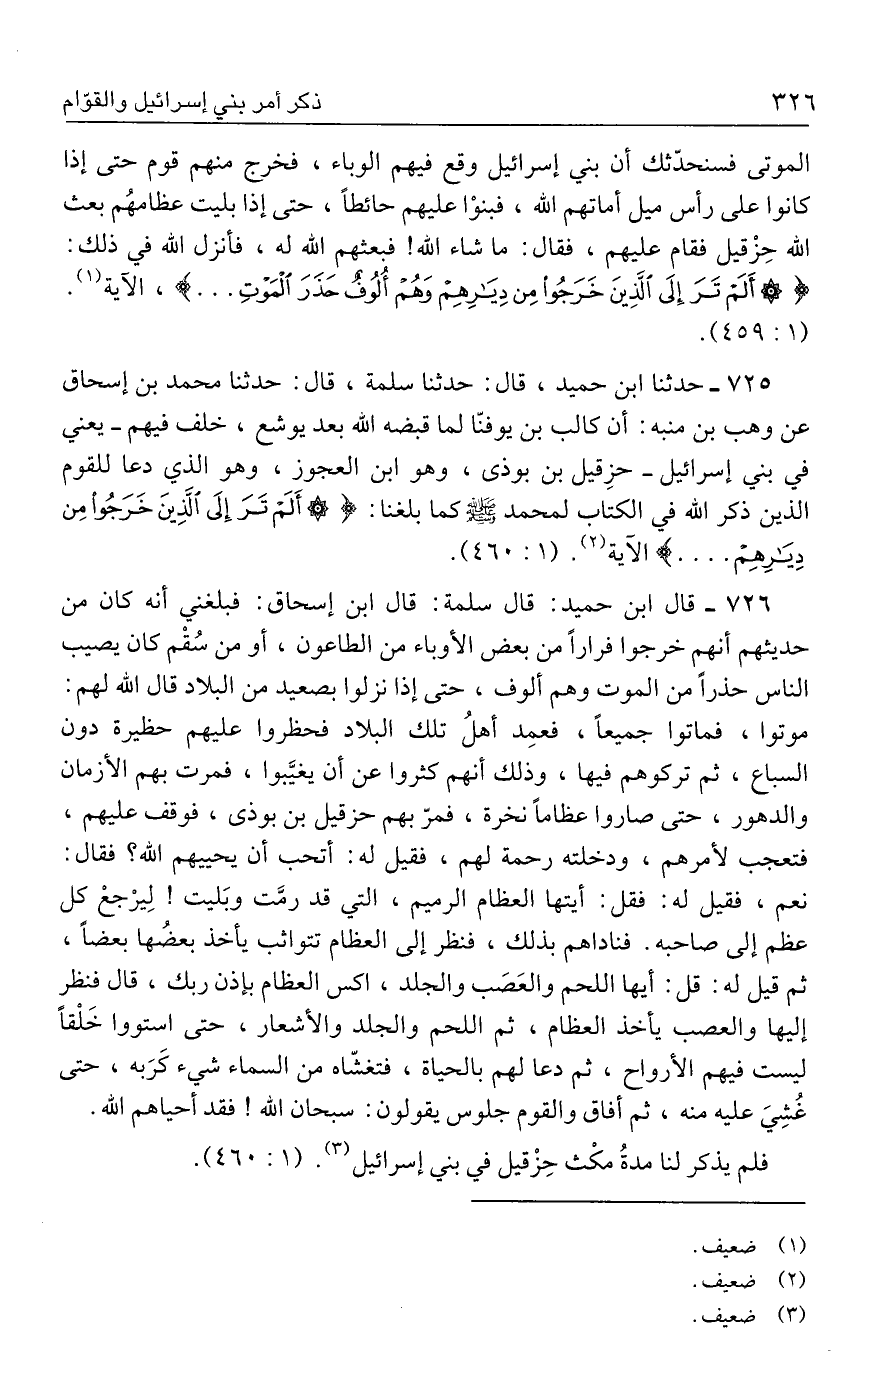 ٣٢٦ ذكر أمر بني إسرائيل والقوّام
الموتى فسنحدّثك أن بني إسرائيل وقع فيهم الوباء ، فخرج منهم قوم حتى إذا
كانوا على رأس ميل أماتهم الله ، فبنوْا عليهم حائطاً ، حتى إذا بليت عظامهُم بعث
الله حِزْقيل فقام عليهم ، فقال: ما شاء الله! فبعثهم الله له ، فأنزل الله في ذلك:
﴿ ۞ أَلَمْ تَرَ إِلَى ٱلَّذِينَ خَرَجُوا۟ مِن دِيَـٰرِهِمْ وَهُمْ أُلُوفٌ حَذَرَ ٱلْمَوْتِ. . .﴾ ، الآية(١).
(١ : ٤٥٩).
٧٢٥ ـ حدثنا ابن حميد ، قال: حدثنا سلمة ، قال: حدثنا محمد بن إسحاق
عن وهب بن منبه: أن كالب بن يوفنّا لما قبضه الله بعد يوشع ، خلف فيهم ـ يعني
في بني إسرائيل ـ حزِقيل بن بوذى ، وهو ابن العجوز ، وهو الذي دعا للقوم
الذين ذكر الله في الكتاب لمحمد ﷺ كما بلغنا: ﴿ ۞ أَلَمْ تَرَ إِلَى ٱلَّذِينَ خَرَجُوا۟ مِن
دِيَـٰرِهِمْ. . . .﴾ الآية(٢). (١ : ٤٦٠).
٧٢٦ ـ قال ابن حميد: قال سلمة: قال ابن إسحاق: فبلغني أنه كان من
حديثهم أنهم خرجوا فراراً من بعض الأوباء من الطاعون ، أو من سُقْم كان يصيب
الناس حذراً من الموت وهم ألوف ، حتى إذا نزلوا بصعيد من البلاد قال الله لهم:
موتوا ، فماتوا جميعاً ، فعمِد أهلُ تلك البلاد فحظروا عليهم حظيرة دون
السباع ، ثم تركوهم فيها ، وذلك أنهم كثروا عن أن يغيَّبوا ، فمرت بهم الأزمان
والدهور ، حتى صاروا عظاماً نخرة ، فمرّ بهم حزقيل بن بوذى ، فوقف عليهم ،
فتعجب لأمرهم ، ودخلته رحمة لهم ، فقيل له: أتحب أن يحييهم الله؟ فقال:
نعم ، فقيل له: فقل: أيتها العظام الرميم ، التي قد رمَّت وبَليت ! لِيرْجعْ كل
عظم إلى صاحبه. فناداهم بذلك ، فنظر إلى العظام تتواثب يأخذ بعضُها بعضاً ،
ثم قيل له: قل: أيها اللحم والعَصَب والجلد ، اكس العظام بإذن ربك ، قال فنظر
إليها والعصب يأخذ العظام ، ثم اللحم والجلد والأشعار ، حتى استووا خَلْقاً
ليست فيهم الأرواح ، ثم دعا لهم بالحياة ، فتغشّاه من السماء شيء كَرَبه ، حتى
غُشِيَ عليه منه ، ثم أفاق والقوم جلوس يقولون: سبحان الله ! فقد أحياهم الله .
فلم يذكر لنا مدةُ مكْث حِزْقيل في بني إسرائيل(٣). (١ : ٤٦٠).
(١) ضعيف.
(٢) ضعيف.
(٣) ضعيف.